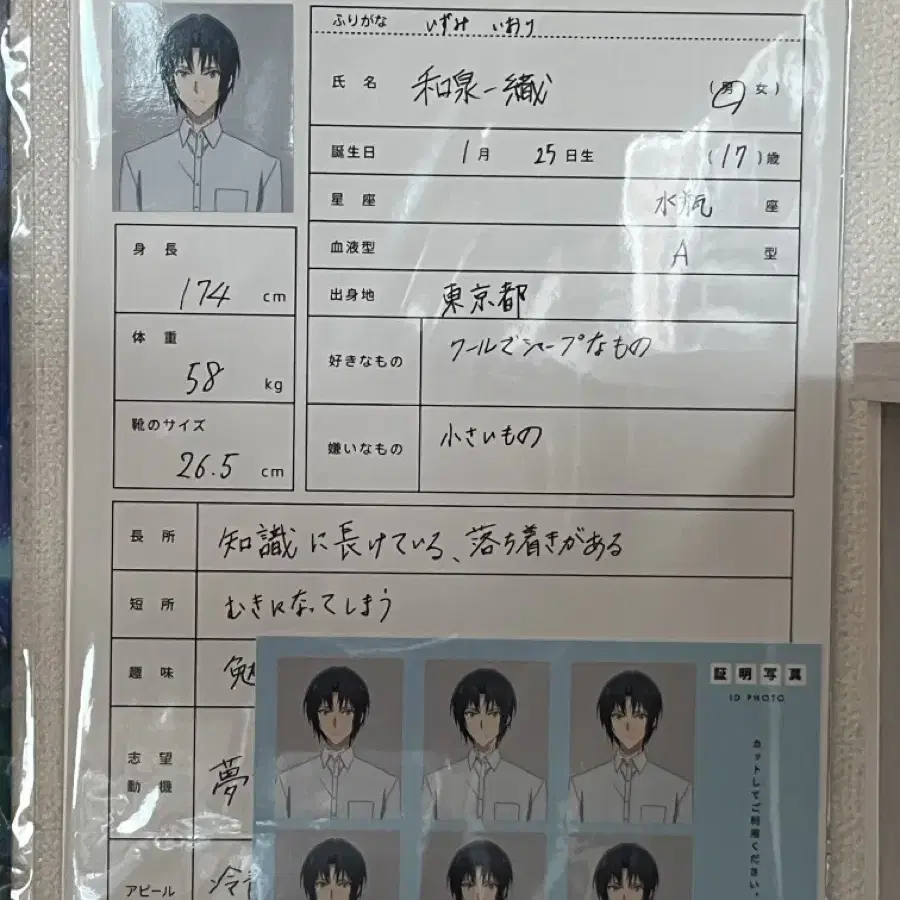 ふりがな いずみ いおり
氏名 和泉一織 (男 女)
誕生日 1月 25日生 (17)歳
星座 水瓶 座
血液型 A 型
出身地 東京都
好きなもの クールでシャープなもの
嫌いなもの 小さいもの
身長
174 cm
体重
58 kg
靴のサイズ
26.5 cm
長所 知識に長けている、落ち着きがある
短所 むきになってしまう
趣味 勉
志望
動機 夢
アピール 冷
証明写真
ID PHOTO
カットしてご利用ください。